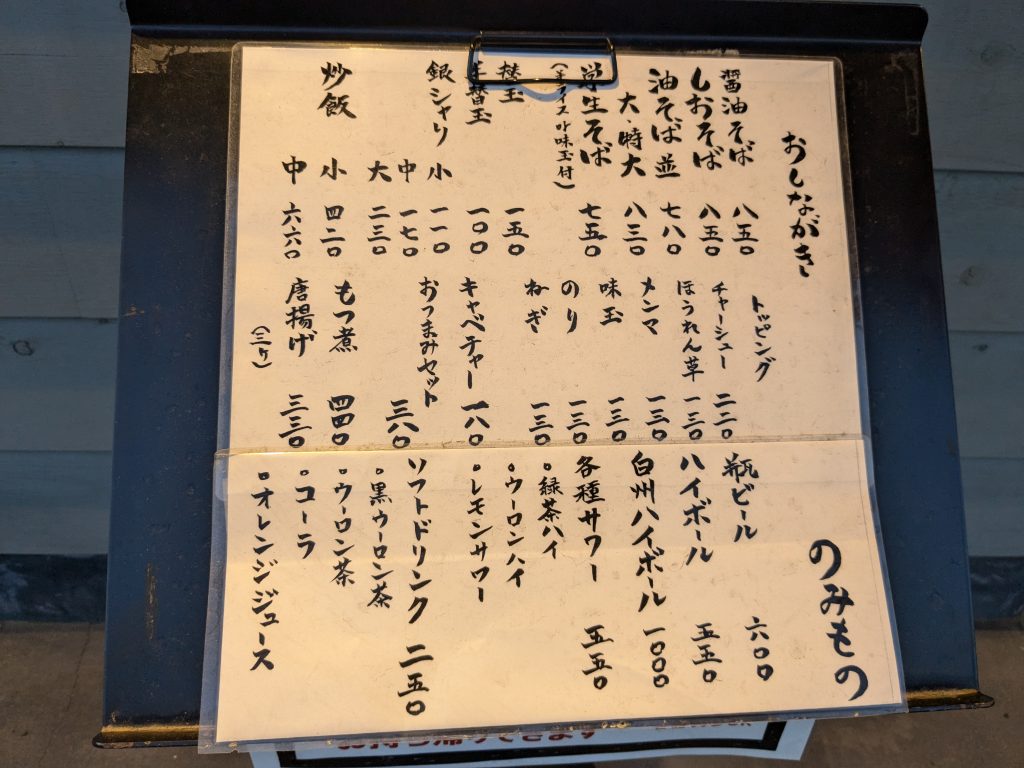 おしながき
醤油そば 八五〇
しおそば 八五〇
油そば 並 七八〇
大・特大 八三〇
学生そば 七五〇
味玉付)
替玉 一五〇
半替玉 一〇〇
銀シャリ 小 一一〇
中 一七〇
大 二三〇
炒飯 小 四二〇
中 六六〇
トッピング
チャーシュー 二二〇
ほうれん草 一三〇
メンマ 一三〇
味玉 一三〇
のり 一三〇
ねぎ 一三〇
キャベチャー 一八〇
おつまみセット 三八〇
もつ煮 四四〇
唐揚げ 三三〇
(三ケ)
のみもの
瓶ビール 六〇〇
ハイボール 五五〇
白州ハイボール 一〇〇〇
各種サワー 五五〇
。緑茶ハイ
。ウーロンハイ
。レモンサワー
ソフトドリンク 二五〇
。黒ウーロン茶
。ウーロン茶
。コーラ
。オレンジジュース
お持ち帰りできます